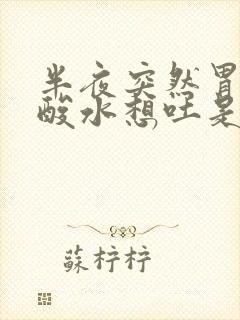 半夜突然冒
酸水想吐是
蘇梓梓